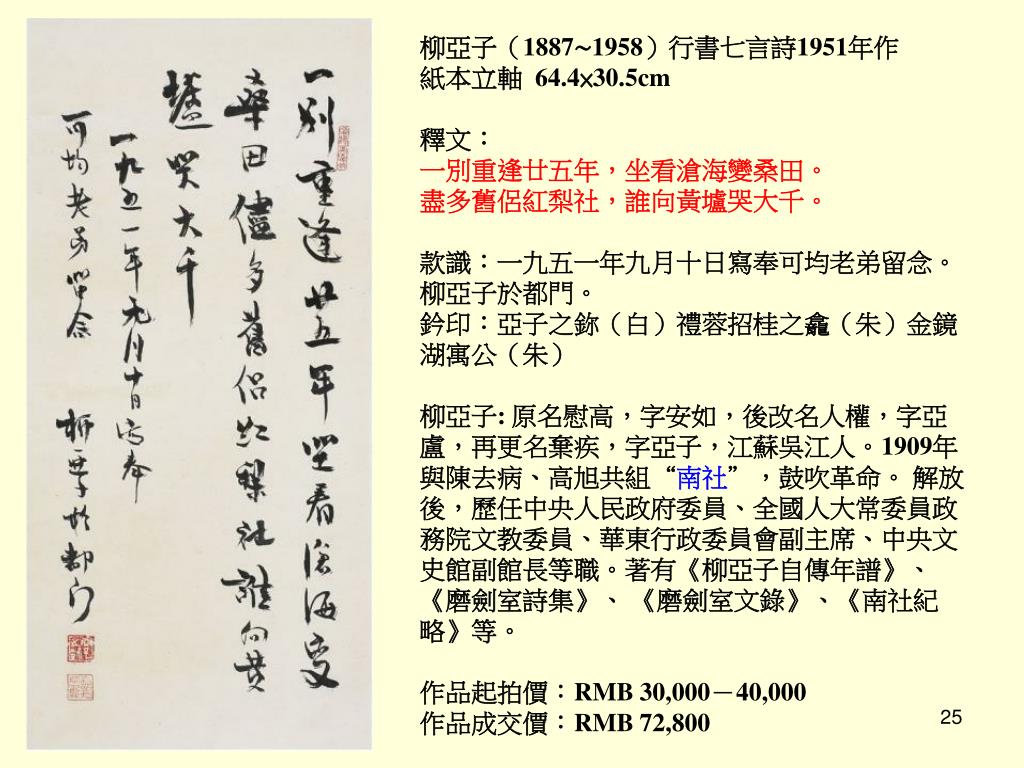 一別重逢廿五年坐看滄海變
桑田儘多舊侶紅梨社誰向黃
壚哭大千
一九五一年元月十日寫奉
可均老弟留念 柳亞子於都門
柳亞子（1887~1958）行書七言詩1951年作
紙本立軸 64.4×30.5cm
釋文：
一別重逢廿五年，坐看滄海變桑田。
盡多舊侶紅梨社，誰向黃壚哭大千。
款識：一九五一年九月十日寫奉可均老弟留念。
柳亞子於都門。
鈐印：亞子之鉨（白）禮蓉招桂之龕（朱）金鏡
湖寓公（朱）
柳亞子: 原名慰高，字安如，後改名人權，字亞
盧，再更名棄疾，字亞子，江蘇吳江人。1909年
與陳去病、高旭共組“南社”，鼓吹革命。 解放
後，歷任中央人民政府委員、全國人大常委員政
務院文教委員、華東行政委員會副主席、中央文
史館副館長等職。著有《柳亞子自傳年譜》、
《磨劍室詩集》、《磨劍室文錄》、《南社紀
略》等。
作品起拍價：RMB 30,000－40,000
作品成交價：RMB 72,800
25